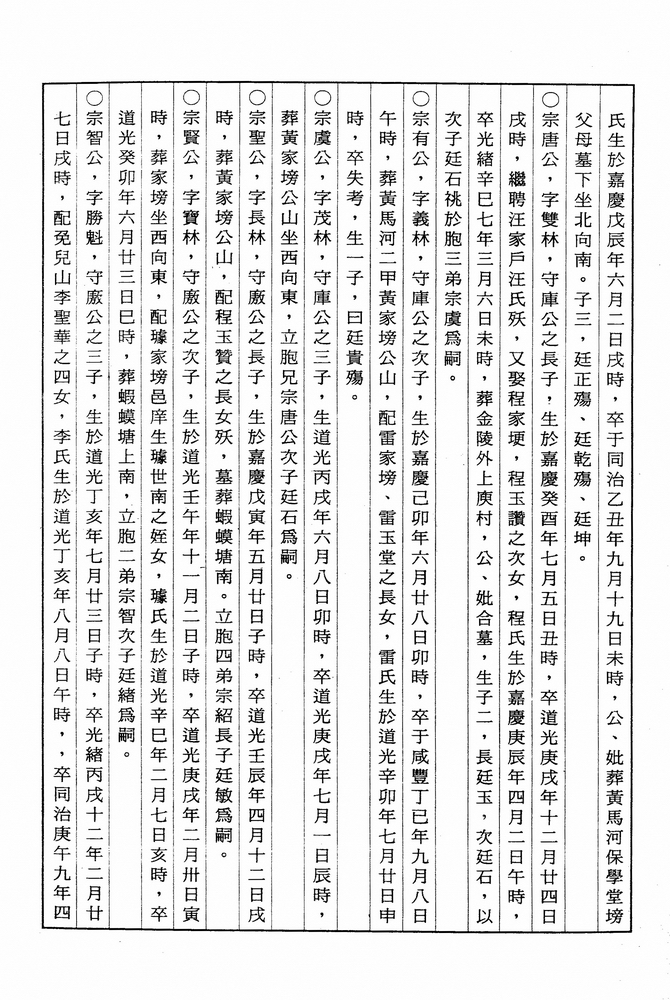 氏生於嘉慶戊辰年六月二日戌時，卒于同治乙丑年九月十九日未時，公、妣葬黃馬河保學堂塝
父母墓下坐北向南。子三，廷正殤、廷乾殤、廷坤。
○宗唐公，字雙林，守庫公之長子，生於嘉慶癸酉年七月五日丑時，卒道光庚戌年十二月廿四日
戌時，繼聘汪家戶汪氏殀，又娶程家埂，程玉讚之次女，程氏生於嘉慶庚辰年四月二日午時，
卒光緒辛巳七年三月六日未時，葬金陵外上庾村，公、妣合墓，生子二，長廷玉，次廷石，以
次子廷石祧於胞三弟宗虞爲嗣。
○宗有公，字義林，守庫公之次子，生於嘉慶己卯年六月廿八日卯時，卒于咸豐丁巳年九月八日
午時，葬黃馬河二甲黃家塝公山，配雷家塝、雷玉堂之長女，雷氏生於道光辛卯年七月廿日申
時，卒失考，生一子，曰廷貴殤。
○宗虞公，字茂林，守庫公之三子，生道光丙戌年六月八日卯時，卒道光庚戌年七月一日辰時，
葬黃家塝公山坐西向東，立胞兄宗唐公次子廷石爲嗣。
○宗聖公，字長林，守廒公之長子，生於嘉慶戊寅年五月廿日子時，卒道光壬辰年四月十二日戌
時，葬黃家塝公山，配程玉贊之長女殀，墓葬蝦蟆塘南。立胞四弟宗紹長子廷敏爲嗣。
○宗賢公，字寶林，守廒公之次子，生於道光壬午年十一月二日子時，卒道光庚戌年二月卅日寅
時，葬家塝坐西向東，配璩家塝邑庠生璩世南之姪女，璩氏生於道光辛巳年二月七日亥時，卒
道光癸卯年六月廿三日巳時，葬蝦蟆塘上南，立胞二弟宗智次子廷緒爲嗣。
○宗智公，字勝魁，守廒公之三子，生於道光丁亥年七月廿三日子時，卒光緒丙戌十二年二月廿
七日戌時，配兔兒山李聖華之四女，李氏生於道光丁亥年八月八日午時，，卒同治庚午九年四